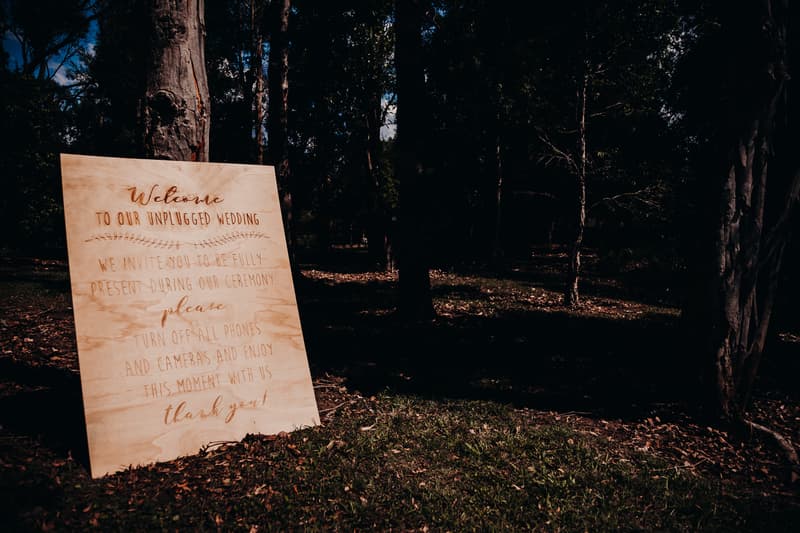 Welcome
TO OUR UNPLUGGED WEDDING
WE INVITE YOU TO BE FULLY
PRESENT DURING OUR CEREMONY
please
TURN OFF ALL PHONES
AND CAMERAS AND ENJOY
THIS MOMENT WITH US
thank you!